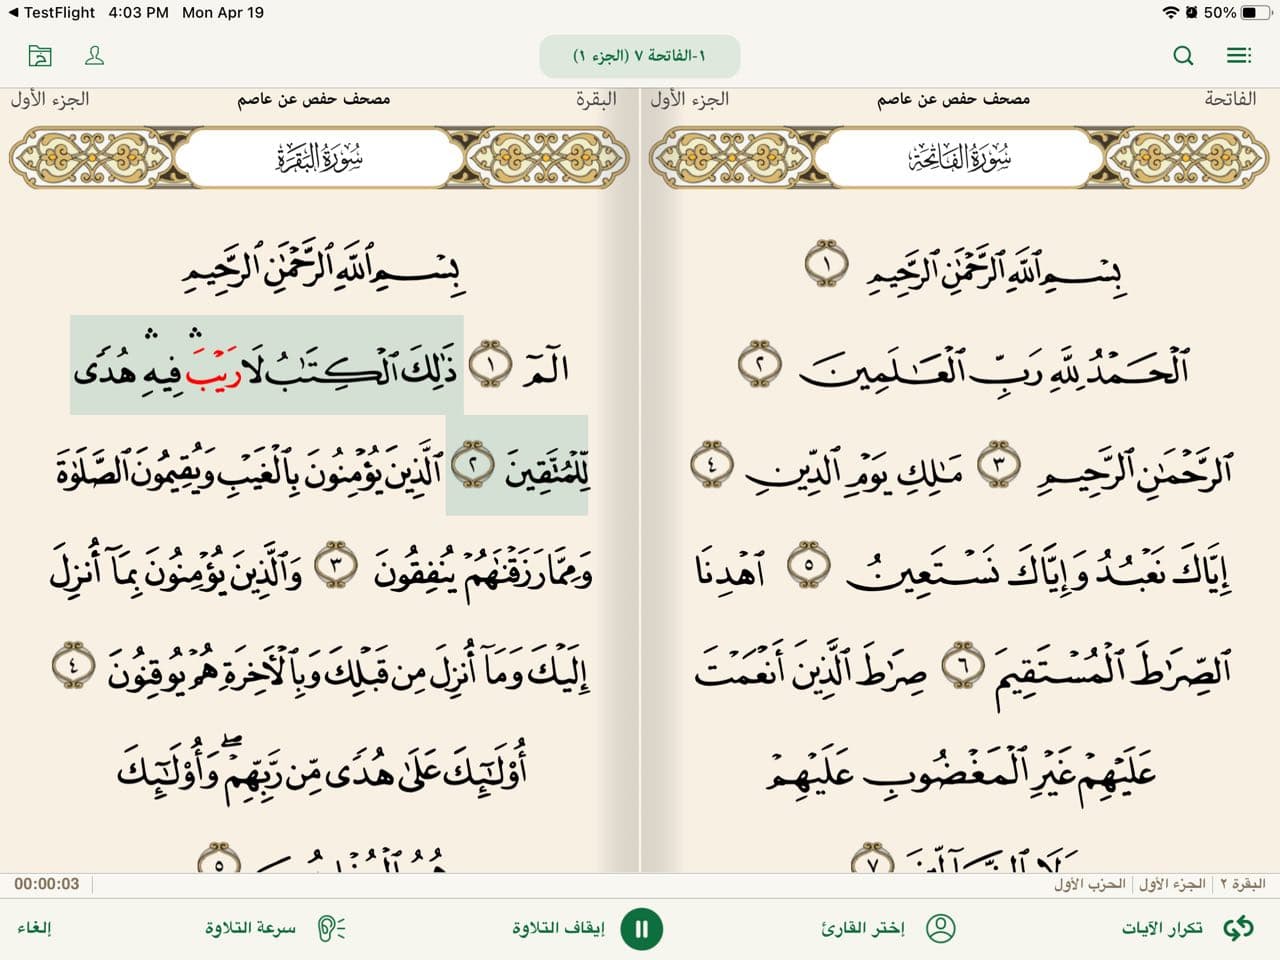 ◄ TestFlight 4:03 PM Mon Apr 19 50%
١-الفاتحة ٧ (الجزء ١)
الفاتحة مصحف حفص عن عاصم الجزء الأول
سُورَةُ الفَاتِحَةِ
بِسْمِ ٱللَّهِ ٱلرَّحْمَٰنِ ٱلرَّحِيمِ ١
ٱلْحَمْدُ لِلَّهِ رَبِّ ٱلْعَٰلَمِينَ ٢
ٱلرَّحْمَٰنِ ٱلرَّحِيمِ ٣ مَٰلِكِ يَوْمِ ٱلدِّينِ ٤
إِيَّاكَ نَعْبُدُ وَإِيَّاكَ نَسْتَعِينُ ٥ ٱهْدِنَا
ٱلصِّرَٰطَ ٱلْمُسْتَقِيمَ ٦ صِرَٰطَ ٱلَّذِينَ أَنْعَمْتَ
عَلَيْهِمْ غَيْرِ ٱلْمَغْضُوبِ عَلَيْهِمْ
وَلَا ٱلضَّآلِّينَ ٧
البقرة مصحف حفص عن عاصم الجزء الأول
سُورَةُ البَقَرَةِ
بِسْمِ ٱللَّهِ ٱلرَّحْمَٰنِ ٱلرَّحِيمِ
الٓمٓ ١ ذَٰلِكَ ٱلْكِتَٰبُ لَا رَيْبَ ۛ فِيهِ ۛ هُدًى
لِّلْمُتَّقِينَ ٢ ٱلَّذِينَ يُؤْمِنُونَ بِٱلْغَيْبِ وَيُقِيمُونَ ٱلصَّلَوٰةَ
وَمِمَّا رَزَقْنَٰهُمْ يُنفِقُونَ ٣ وَٱلَّذِينَ يُؤْمِنُونَ بِمَآ أُنزِلَ
إِلَيْكَ وَمَآ أُنزِلَ مِن قَبْلِكَ وَبِٱلْأٓخِرَةِ هُمْ يُوقِنُونَ ٤
أُو۟لَٰٓئِكَ عَلَىٰ هُدًى مِّن رَّبِّهِمْ ۖ وَأُو۟لَٰٓئِكَ
هُمُ ٱلْمُفْلِحُونَ ٥
البقرة ٢ | الجزء الأول | الحزب الأول 00:00:03
تكرار الآيات إختر القارئ إيقاف التلاوة سرعة التلاوة إلغاء